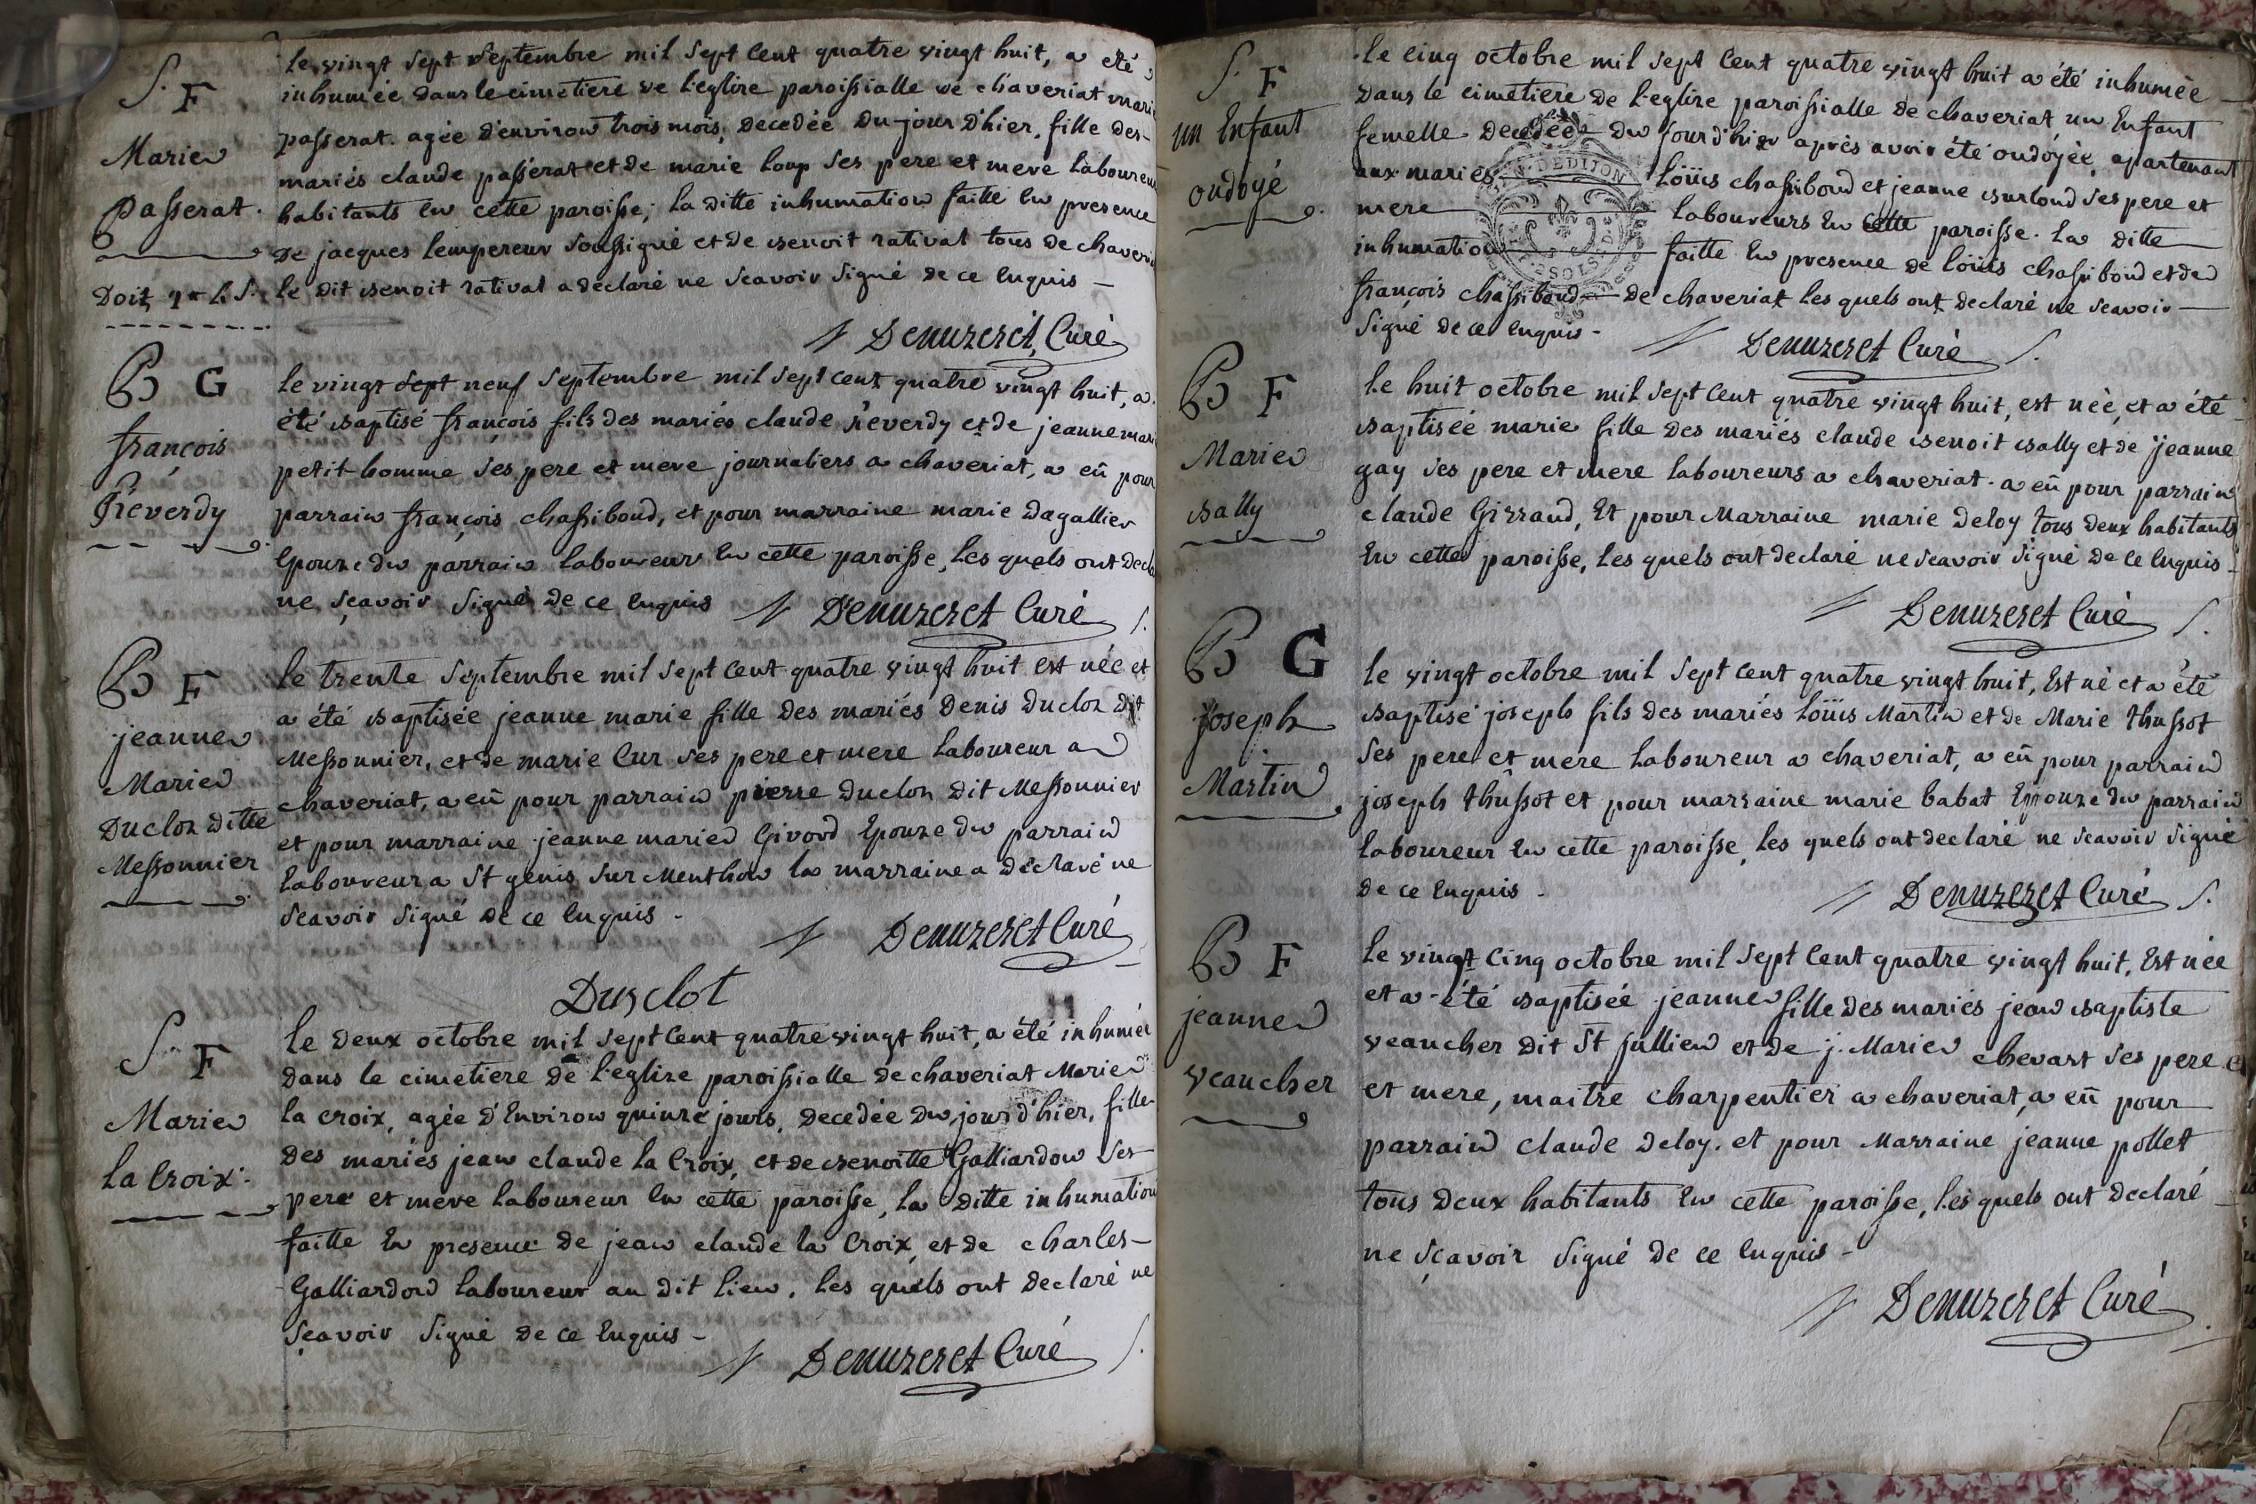 S. F
Marie
Passerat.
Doit
le vingt sept Septembre mil sept cent quatre vingt huit, a eté
inhumée dans le cimetiere de l'eglise paroissialle de chaveriat marie
passerat. agée d'environ trois mois, decedée du jour d'hier, fille des
mariés claude passerat et de marie loup ses pere et mere laboureur
habitants en cette paroisse; la ditte inhumation faitte en presence
de jacques lempereur soussigné et de benoit rativat tous de chaveriat
le dit benoit rativat a declaré ne scavoir signé de ce enquis —
Denuzeret, Curé
B G
françois
Réverdy
le vingt sept neuf Septembre mil sept cent quatre vingt huit, a
été baptisé françois fils des mariés claude réverdy et de jeanne marie
petit homme ses pere et mere journaliers a chaveriat, a eû pour
parrain françois chassiboud, et pour marraine marie dagallier
Epouze du parrain laboureur en cette paroisse, les quels ont declaré
ne sçavoir signé de ce enquis Denuzeret Curé S.
B F
jeanne
Marie
Ducloz ditte
Messonnier
le trente Septembre mil sept cent quatre vingt huit est née et
a été baptisée jeanne marie fille des mariés Denis Ducloz dit
Messonnier, et de marie Cur ses pere et mere laboureur a
chaveriat, a eû pour parrain pierre Ducloz dit Messonnier
et pour marraine jeanne marie Givord Epouze du parrain
laboureur a St genis sur Menthon la marraine a déclaré ne
scavoir signé de ce enquis -
Denuzeret Curé
Dusclot
S. F
Marie
la Croix.
le deux octobre mil sept cent quatre vingt huit, a été inhumée
dans le cimetiere de l'eglize paroissialle de chaveriat Marie
la croix, agée d'Environ quinze jours, decedée du jour d'hier, fille
des mariés jean claude la Croix, et de benoitte Galliardon ses
pere et mere laboureur en cette paroisse, la ditte inhumation
faitte en presence de jean claude la Croix, et de charles
Galliardon laboureur au dit lieu, les quels ont declaré ne
sçavoir signé de ce enquis -
Denuzeret Curé S.
S. F
un Enfant
ondoyé
le cinq octobre mil sept cent quatre vingt huit a été inhumée
dans le cimetiere de l'eglise paroissialle de chaveriat un Enfant
femelle decedée du jour d'hier après avoir été ondoyée, apartenant
aux mariés loüis chassiboud et jeanne burloud ses pere et
mere laboureurs en cette paroisse. la ditte
inhumation faitte en presence de loüis chassiboud et de
françois chassiboud de chaveriat les quels ont declaré ne scavoir
signé de ce enquis -
Denuzeret Curé S.
B F
Marie
bally
le huit octobre mil sept cent quatre vingt huit, est née, et a été
baptisée marie fille des mariés claude benoit bally et de jeanne
gay ses pere et mere laboureurs a chaveriat. a eû pour parrain
claude Girraud, Et pour Marraine marie deloy tous deux habitants
En cette paroisse, les quels ont declaré ne scavoir signé de ce enquis -
Denuzeret Curé S.
B G
joseph
Martin
le vingt octobre mil sept cent quatre vingt huit, Est né et a été
baptisé joseph fils des mariés loüis Martin et de Marie thussot
ses pere et mere laboureur a chaveriat, a eû pour parrain
joseph thussot et pour marraine marie babat Epouze du parrain
laboureur en cette paroisse, les quels ont declaré ne scavoir signé
de ce enquis -
Denuzeret Curé S.
B F
jeanne
veaucher
le vingt cinq octobre mil sept cent quatre vingt huit, Est née
et a été baptisée jeanne fille des mariés jean baptiste
veaucher dit St jullien et de j. Marie chevart ses pere et
et mere, maitre charpentier a chaveriat, a eû pour
parrain claude deloy. et pour Marraine jeanne pollet
tous deux habitants en cette paroisse, les quels ont declaré
ne sçavoir signé de ce enquis -
Denuzeret Curé